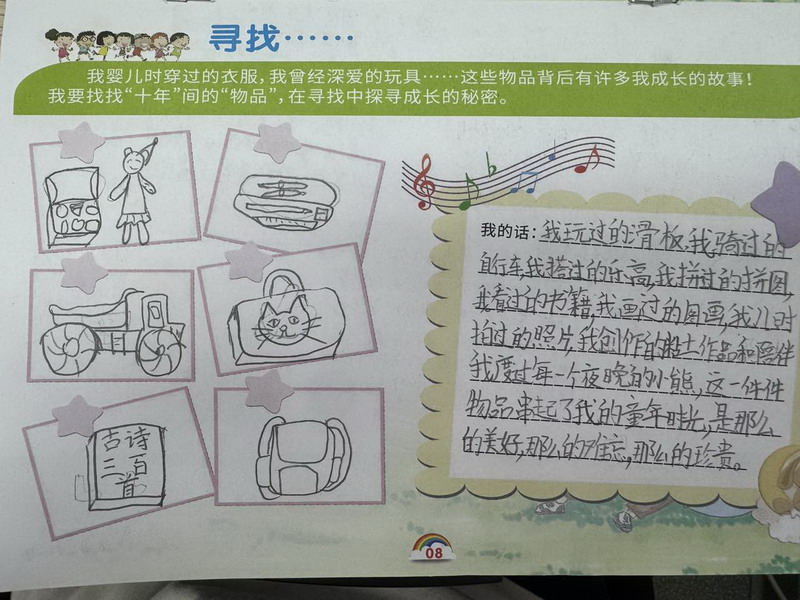 寻找……
我婴儿时穿过的衣服，我曾经深爱的玩具……这些物品背后有许多我成长的故事！
我要找找“十年”间的“物品”，在寻找中探寻成长的秘密。
古诗
三百
首
我的话：我玩过的滑板，我骑过的
自行车，我搭过的乐高，我拼过的拼图，
我看过的书籍，我画过的图画，我儿时
拍过的照片，我创作的粘土作品和陪伴
我度过每一个夜晚的小熊，这一件件
物品串起了我的童年时光，是那么
的美好，那么的难忘，那么的珍贵。
08